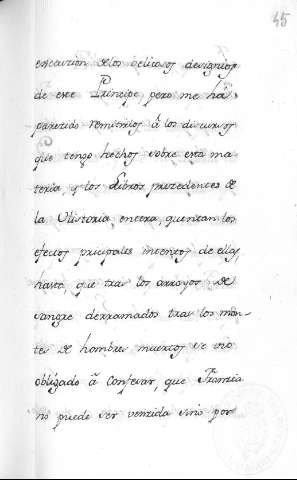 45
execucion de los velicosos designios
de este Principe, pero me ha
parecido remitirlos â los discursos
que tengo hechos sobre esta ma-
teria, y los Libros precedentes de
la Historia entera, quentan los
efectos pricipales intentos de ellos,
hasta que tras los arroyos de
sangre derramados tras los mon-
tes de hombres muertos se vio
obligado â confesar, que Francia
no puede ser vencida sino por